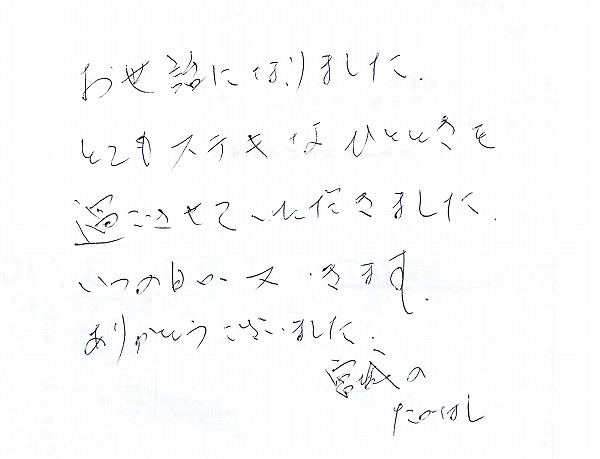 お世話になりました.
とてもステキなひとときを
過ごさせていただきました.
いつの日か又いきます.
ありがとうございました.
宮城の
たかはし